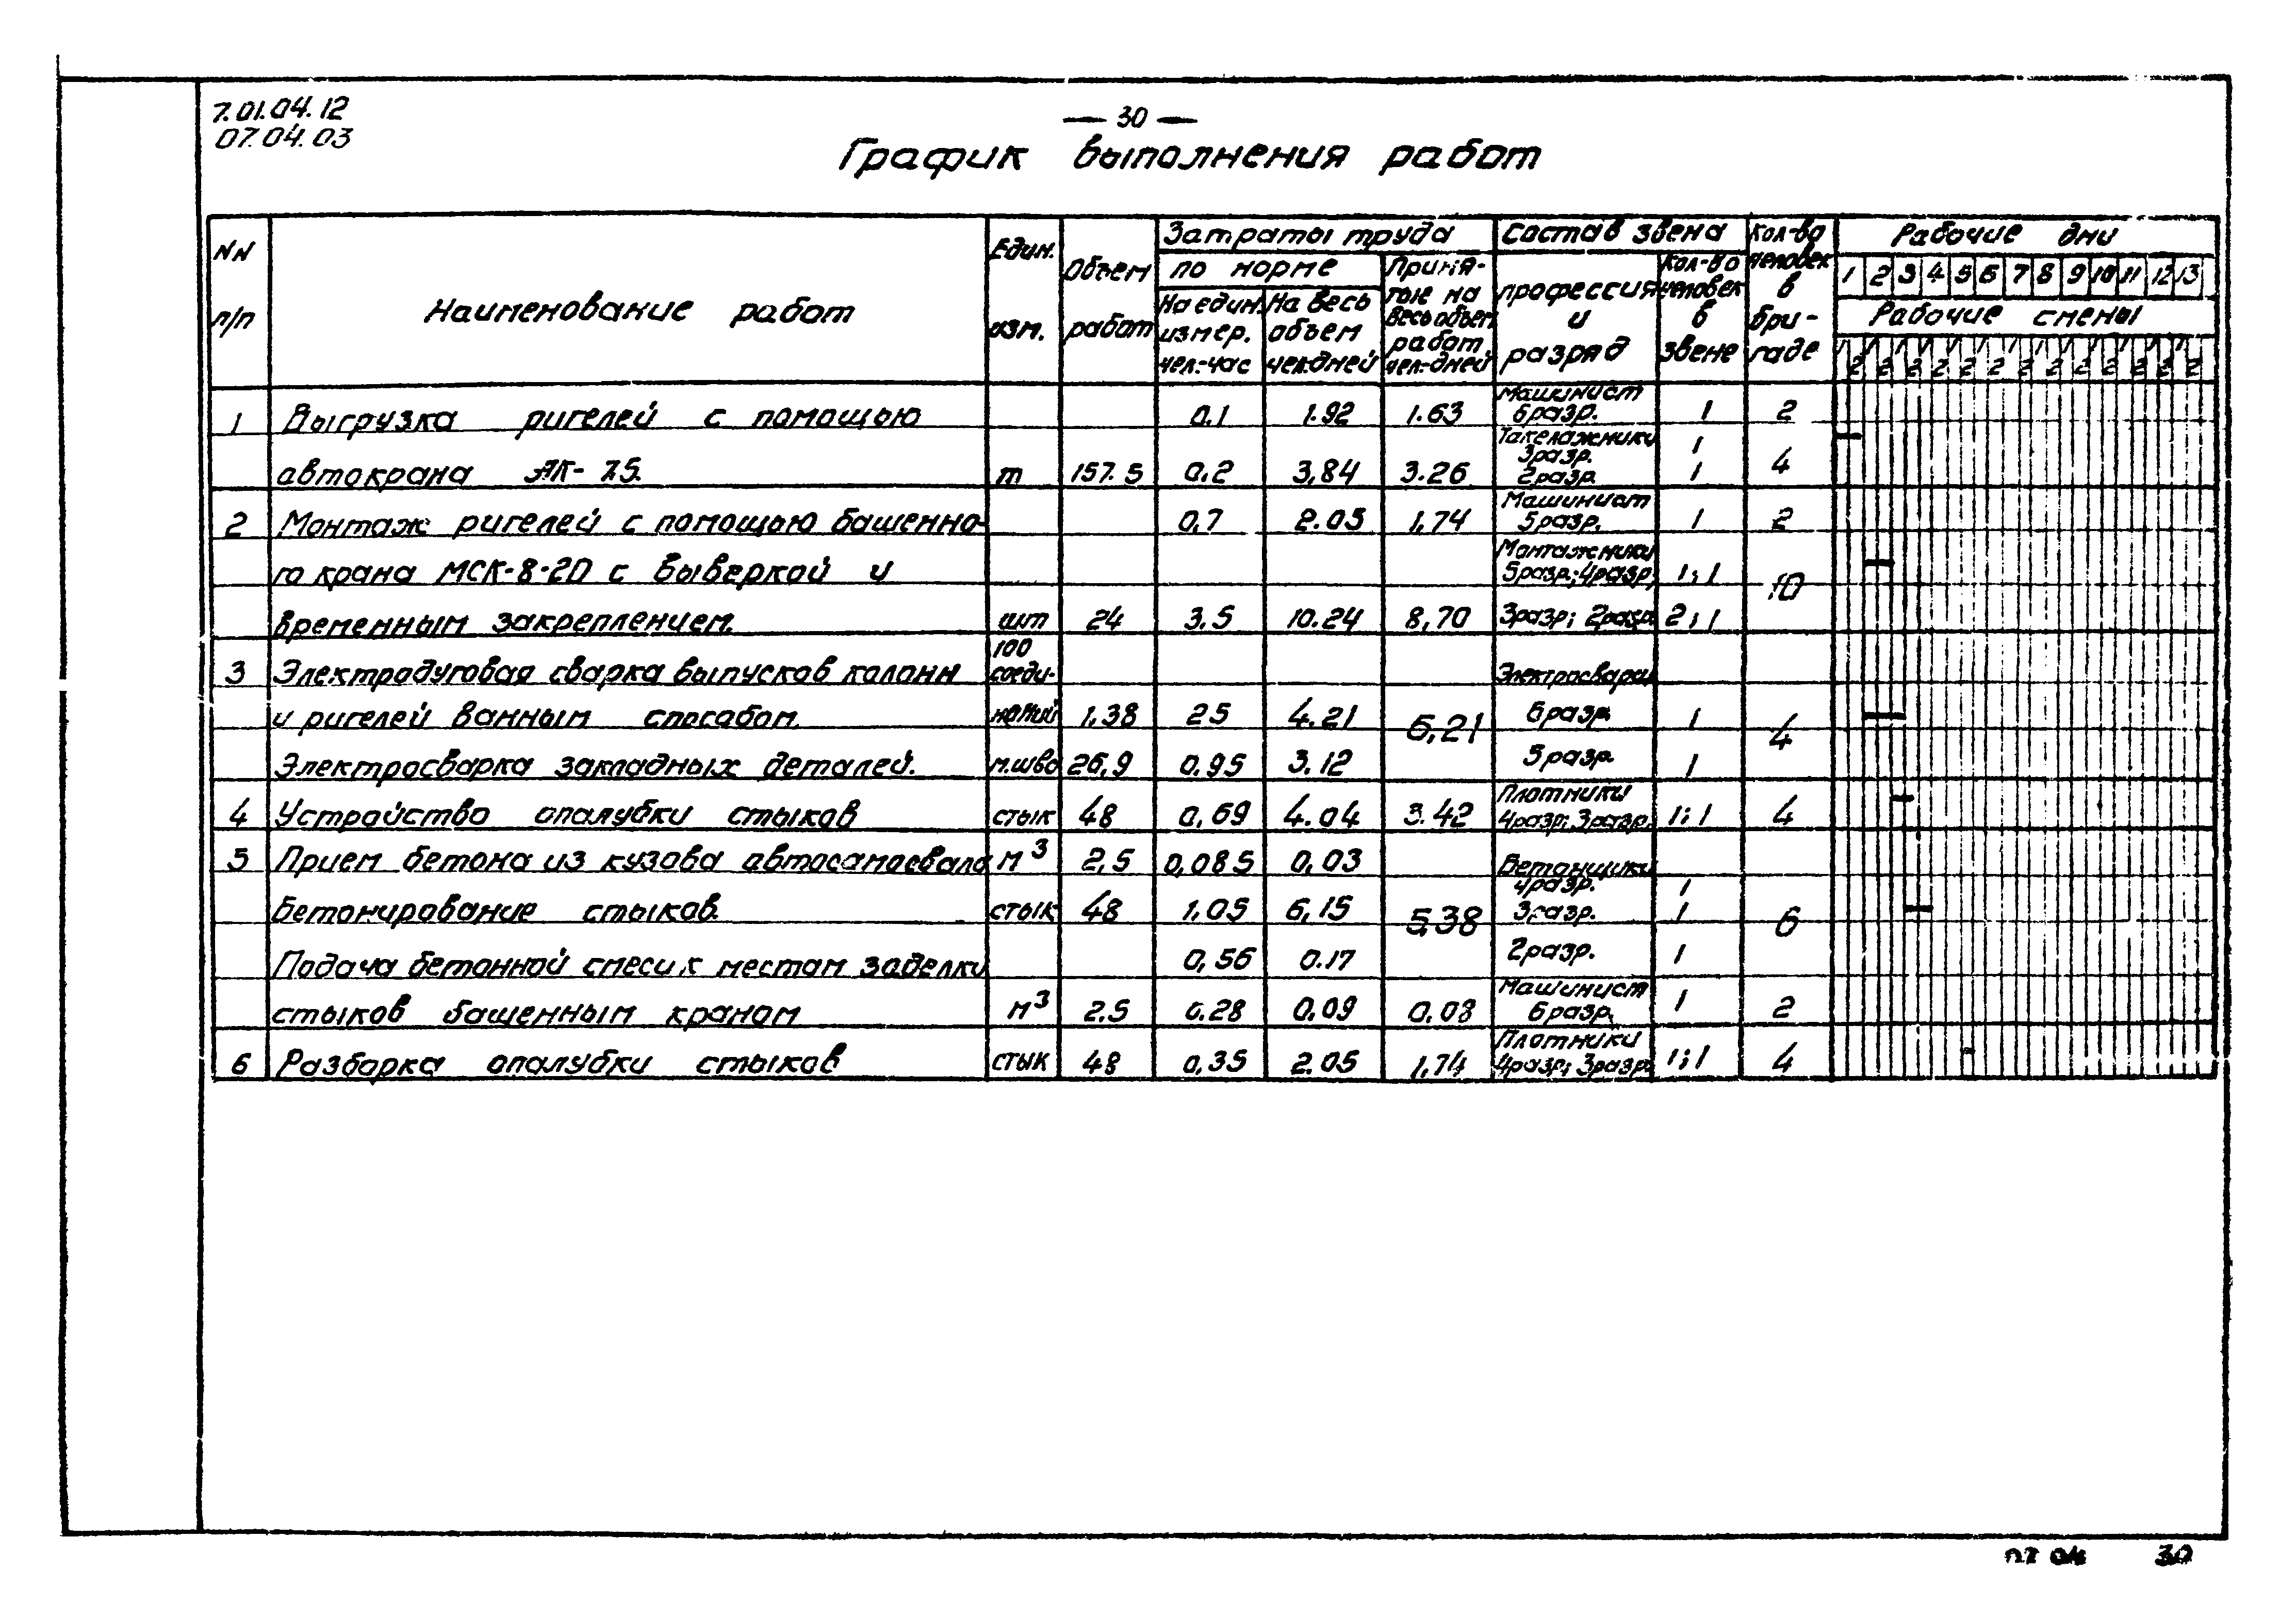 7.01.04.12
07.04.03
— 30 —
График выполнения работ
NN п/п
Наименование работ
Един. изм.
Объем работ
Затраты труда
по норме
На един. измер. чел.-час
На весь объем чел.дней
Приня-тые на весь объем работ чел.-дней
Состав звена
профессия и разряд
Кол-во человек в звене
Кол-во человек в бри-гаде
Рабочие дни
1 2 3 4 5 6 7 8 9 10 11 12 13
Рабочие смены
1 2 1 2 1 2 1 2 1 2 1 2 1 2 1 2 1 2 1 2 1 2 1 2 1 2
1 Выгрузка ригелей с помощью 0.1 1.92 1.63 Машинист 6разр. 1 2
автокрана АК-7.5. т 157.5 0.2 3,84 3.26 Такелажники 3разр. 2разр. 1 1 4
2 Монтаж ригелей с помощью башенно- 0,7 2.05 1,74 Машинист 5разр. 1 2
го крана МСК-8-20 с выверкой и Монтажники 5разр.;4разр; 1;1 10
временным закреплением. шт 24 3.5 10.24 8,70 3разр; 2разр. 2;1
3 Электродуговая сварка выпусков колонн 100 соеди- Электросварщ
и ригелей ванным способом. нений 1.38 25 4.21 6,21 6разр. 1 4
Электросварка закладных деталей. м.шва 26,9 0.95 3.12 5разр. 1
4 Устройство опалубки стыков стык 48 0,69 4.04 3.42 Плотники 4разр; 3разр. 1;1 4
5 Прием бетона из кузова автосамосвала м3 2,5 0,085 0,03 Бетонщики 4разр. 1
Бетонирование стыков. стык 48 1.05 6,15 5,38 3разр. 1 6
Подача бетонной смеси к местам заделки 0,56 0.17 2разр. 1
стыков башенным краном м3 2.5 0.28 0,09 0,08 Машинист 6разр. 1 2
6 Разборка опалубки стыков стык 48 0,35 2.05 1,74 Плотники 4разр; 3разр. 1;1 4
30